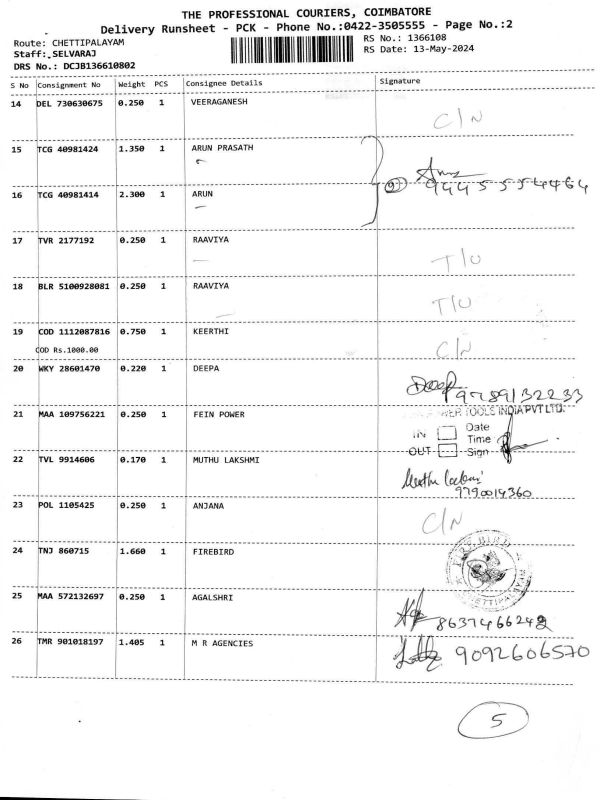 THE PROFESSIONAL COURIERS, COIMBATORE
Delivery Runsheet - PCK - Phone No.:0422-3505555 - Page No.:2
Route: CHETTIPALAYAM RS No.: 1366108
Staff: SELVARAJ RS Date: 13-May-2024
DRS No.: DCJB136610802
S No Consignment No Weight PCS Consignee Details Signature
14 DEL 730630675 0.250 1 VEERAGANESH C/N
15 TCG 40981424 1.350 1 ARUN PRASATH
16 TCG 40981414 2.300 1 ARUN 9445554464
17 TVR 2177192 0.250 1 RAAVIYA T/U
18 BLR 5100928081 0.250 1 RAAVIYA T/U
19 COD 1112087816 0.750 1 KEERTHI C/N
COD Rs.1000.00
20 WKY 28601470 0.220 1 DEEPA Deep 9789132233
21 MAA 109756221 0.250 1 FEIN POWER
POWER TOOLS INDIA PVT LTD.
IN Date
Time
OUT Sign
22 TVL 9914606 0.170 1 MUTHU LAKSHMI Muthu
9790014360
23 POL 1105425 0.250 1 ANJANA C/N
24 TNJ 860715 1.660 1 FIREBIRD
FIRE BIRD
CHETTIPALAYAM
25 MAA 572132697 0.250 1 AGALSHRI 8637466242
26 TMR 901018197 1.405 1 M R AGENCIES 9092606570
5